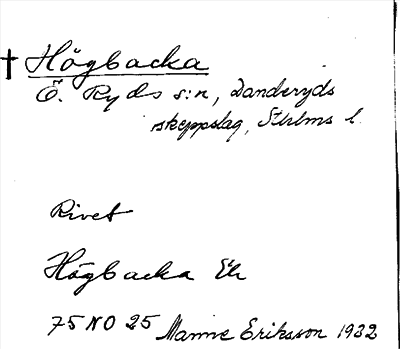 † Högbacka
Ö. Ryds s:n, Danderyds
skeppslag, Sthlms l.
Rivet
Högbacka Ek
75 NO 25 Manne Eriksson 1932